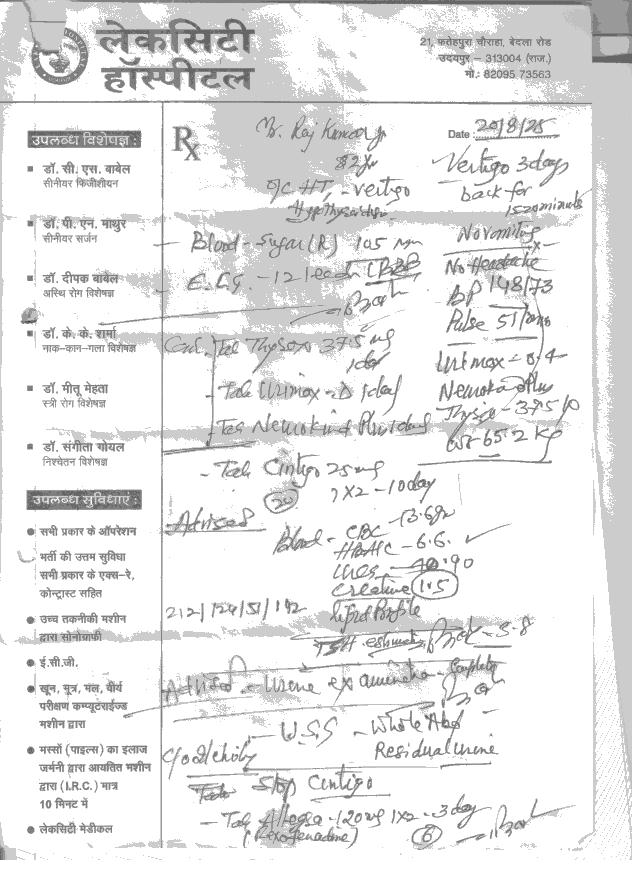 लेकसिटी
हॉस्पीटल
21, फतेहपुरा चौराहा, बेदला रोड
उदयपुर – 313004 (राज.)
मो.: 82095 73563
उपलब्ध विशेषज्ञ :
डॉ. सी. एस. बाबेल
सीनीयर फिजीशीयन
डॉ. पी. एन. माथुर
सीनीयर सर्जन
डॉ. दीपक बाबेल
अस्थि रोग विशेषज्ञ
डॉ. के. के. शर्मा
नाक-कान-गला विशेषज्ञ
डॉ. मीतू मेहता
स्त्री रोग विशेषज्ञ
डॉ. संगीता गोयल
निश्चेतन विशेषज्ञ
उपलब्ध सुविधाएं :
सभी प्रकार के ऑपरेशन
भर्ती की उत्तम सुविधा
सभी प्रकार के एक्स-रे,
कोन्ट्रास्ट सहित
उच्च तकनीकी मशीन
द्वारा सोनोग्राफी
ई.सी.जी.
खून, मूत्र, मल, वीर्य
परीक्षण कम्प्यूटराईज्ड
मशीन द्वारा
मस्सों (पाइल्स) का इलाज
जर्मनी द्वारा आयतित मशीन
द्वारा (I.R.C.) मात्र
10 मिनट में
लेकसिटी मेडीकल
Rx
Mr. Raj Kumar
82 yr
Date : 20/8/25
C/C HT, - Vertigo
Blood - Sugar (R) 105 mg
E.C.G. - 12 lead
Vertigo 3 days
back for
15 20 minute
No vomiting
No Headache
BP 148/73
Pulse 51/
Urimax - 0.4
Nemokind Plus
Thysox - 37.5
wt - 65.2 kg
Cont. Tab Thysox 37.5 mg
1 day
- Tab Urimax - D 1 day
- Tab Nemokind Plus 1 day
- Tab Cintigo 25 mg
1 X 2 - 10 day
20
Advised
Blood - CBC - 13.6
HBA1C - 6.6
Urea - 40.90
Creatine 1.5
212/124/51/142 Lipid Profile
TSH estimation - 5.8
Advised - Urine examination - Complete
- U.S.S - Whole Abd
Residual Urine
Stop Cintigo
- Tab Allegra - 120 mg 1X2 - 3 day
(Fexofenadine)
6